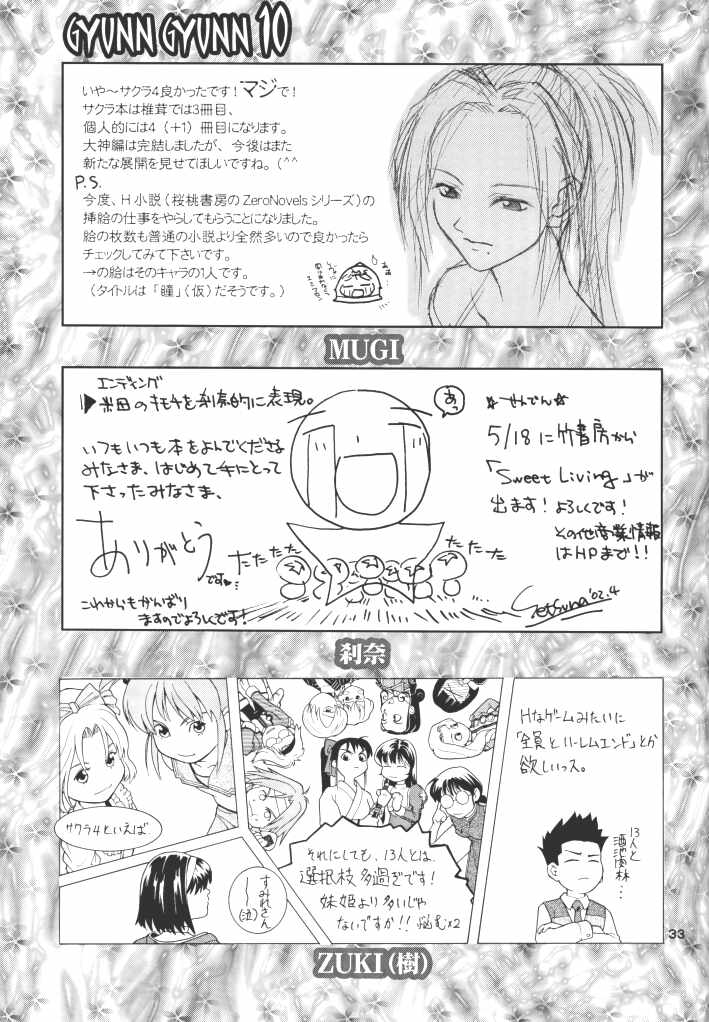 GYUNN GYUNN 10
いや～サクラ4良かったです！マジで！
サクラ本は椎茸では3冊目、
個人的には4（+1）冊目になります。
大神編は完結しましたが、今後はまた
新たな展開を見せてほしいですね。(^^
P.S.
今度、H小説（桜桃書房のZeroNovelsシリーズ）の
挿絵の仕事をやらしてもらうことになりました。
絵の枚数も普通の小説より全然多いので良かったら
チェックしてみて下さいです。
→の絵はそのキャラの1人です。
（タイトルは「瞳」（仮）だそうです。）
MUGI
エンディング
▶米田のキモチを刹奈的に表現。
いつもいつも本をよんでくださる
みなさま、はじめて手にとって
下さったみなさま、
ありがとう
です♥
これからもがんばり
ますのでよろしくです！
あっ
たたたた
たたたた
☆せんでん☆
5/18に竹書房から
「Sweet Living」が
出ます！よろしくです！
その他商業情報
はHPまで!!
Setsuna '02.4
刹奈
サクラ4といえば
すみれさん
〜〜(泣)
それにしても、13人とは、
選択枝多過ぎです！
妹姫より多いじゃ
ないですか!!悩む×2
Hなゲームみたいに
「全員とハーレムエンド」とか
欲しいっス。
13人と
酒池肉林…
33
ZUKI（樹）